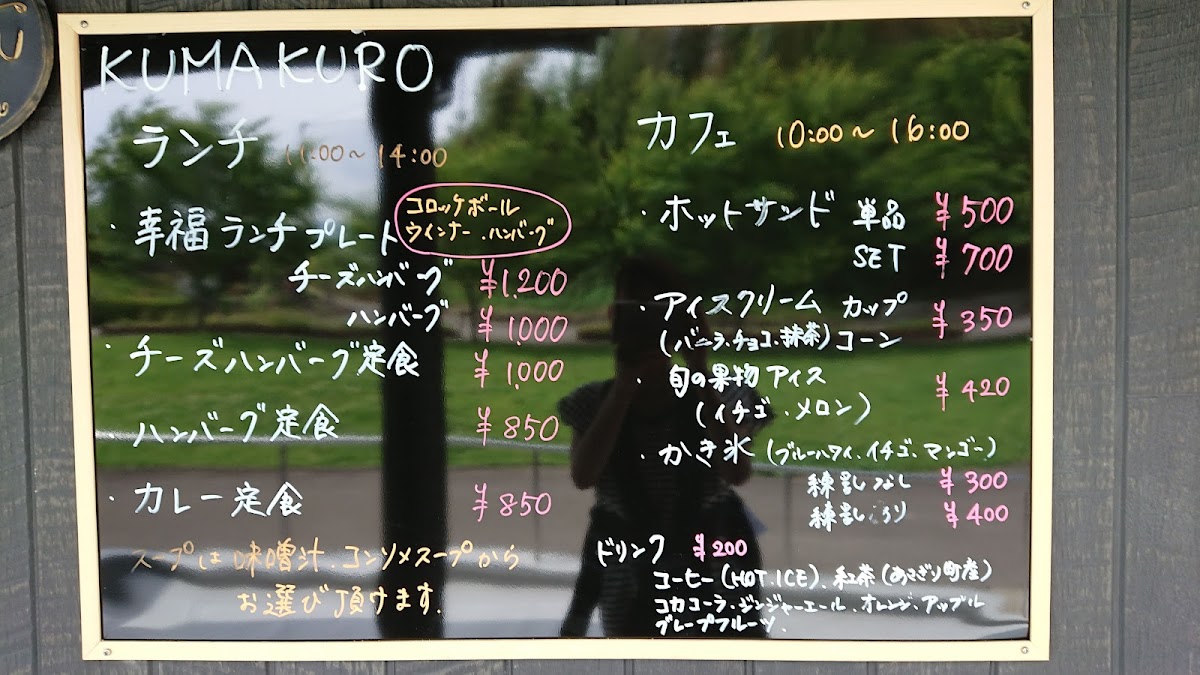 KUMAKURO
ランチ 11:00～14:00
・幸福ランチプレート
コロッケボール
ウインナー.ハンバーグ
チーズハンバーグ ¥1,200
ハンバーグ ¥1,000
・チーズハンバーグ定食 ¥1,000
ハンバーグ定食 ¥850
・カレー定食 ¥850
スープは味噌汁.コンソメスープから
お選び頂けます.
カフェ 10:00～16:00
・ホットサンド 単品 ¥500
SET ¥700
・アイスクリーム カップ
(バニラ.チョコ.抹茶)コーン ¥350
・旬の果物アイス
(イチゴ.メロン) ¥420
・かき氷(ブルーハワイ.イチゴ.マンゴー)
練乳なし ¥300
練乳あり ¥400
ドリンク ¥200
コーヒー(HOT.ICE).紅茶(あさぎり町産)
コカコーラ.ジンジャーエール.オレンジ.アップル
グレープフルーツ.